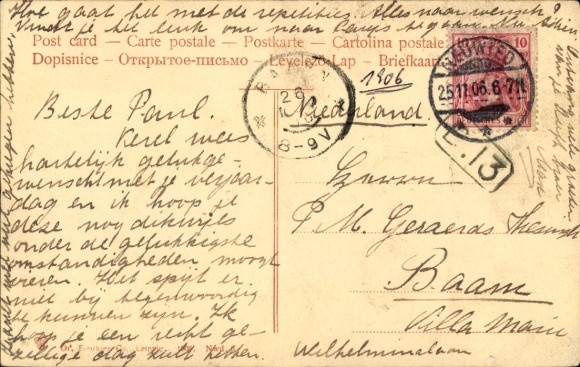 Hoe gaat het met de repetities. Alles naar wensch?
Vindt je het leuk om naar
Post card — Carte postale — Postkarte — Cartolina postale
Dopisnice — Открытое-письмо — Levelező-Lap — Briefkaart
10
25.11.06.6-7N.
BAARN
26
8-9V
1906
Nederland.
L.13
Beste Paul.
Kerel wees
hartelijk geluk ge-
wenscht met je verjaar-
dag en ik hoop je
deze nog dikwijls
onder de gelukkigste
omstandigheden moogt
vieren. Het spijt er
niet bij tegenwoordig
te kunnen zijn. Ik
hoop je een recht ge-
zellige dag zult hebben.
Herrn
P. M. Geraerds
Baarn
Villa Marie
Wilhelminalaan